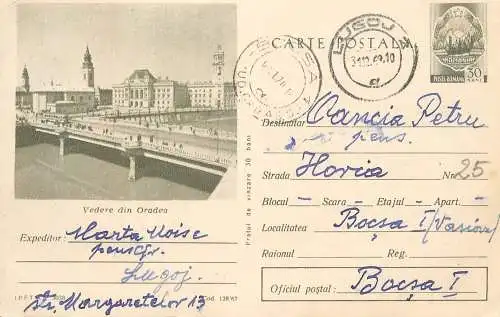 CARTE POSTALA
LUGOJ
31.12.69.10
POSTA ROMANA
30
Destinatar Oancia Petru
pens.
Strada Horia Nr. 25
Blocul - Scara - Etajul - Apart. -
Localitatea Bocșa I (Vasiova)
Raionul Reg.
Oficiul poștal: Bocșa I
Prețul de vînzare 30 bani
Vedere din Oradea
Expeditor: Marta Moise
pensgr.
Lugoj.
str. Margaretelor 13
Cod. 138/67